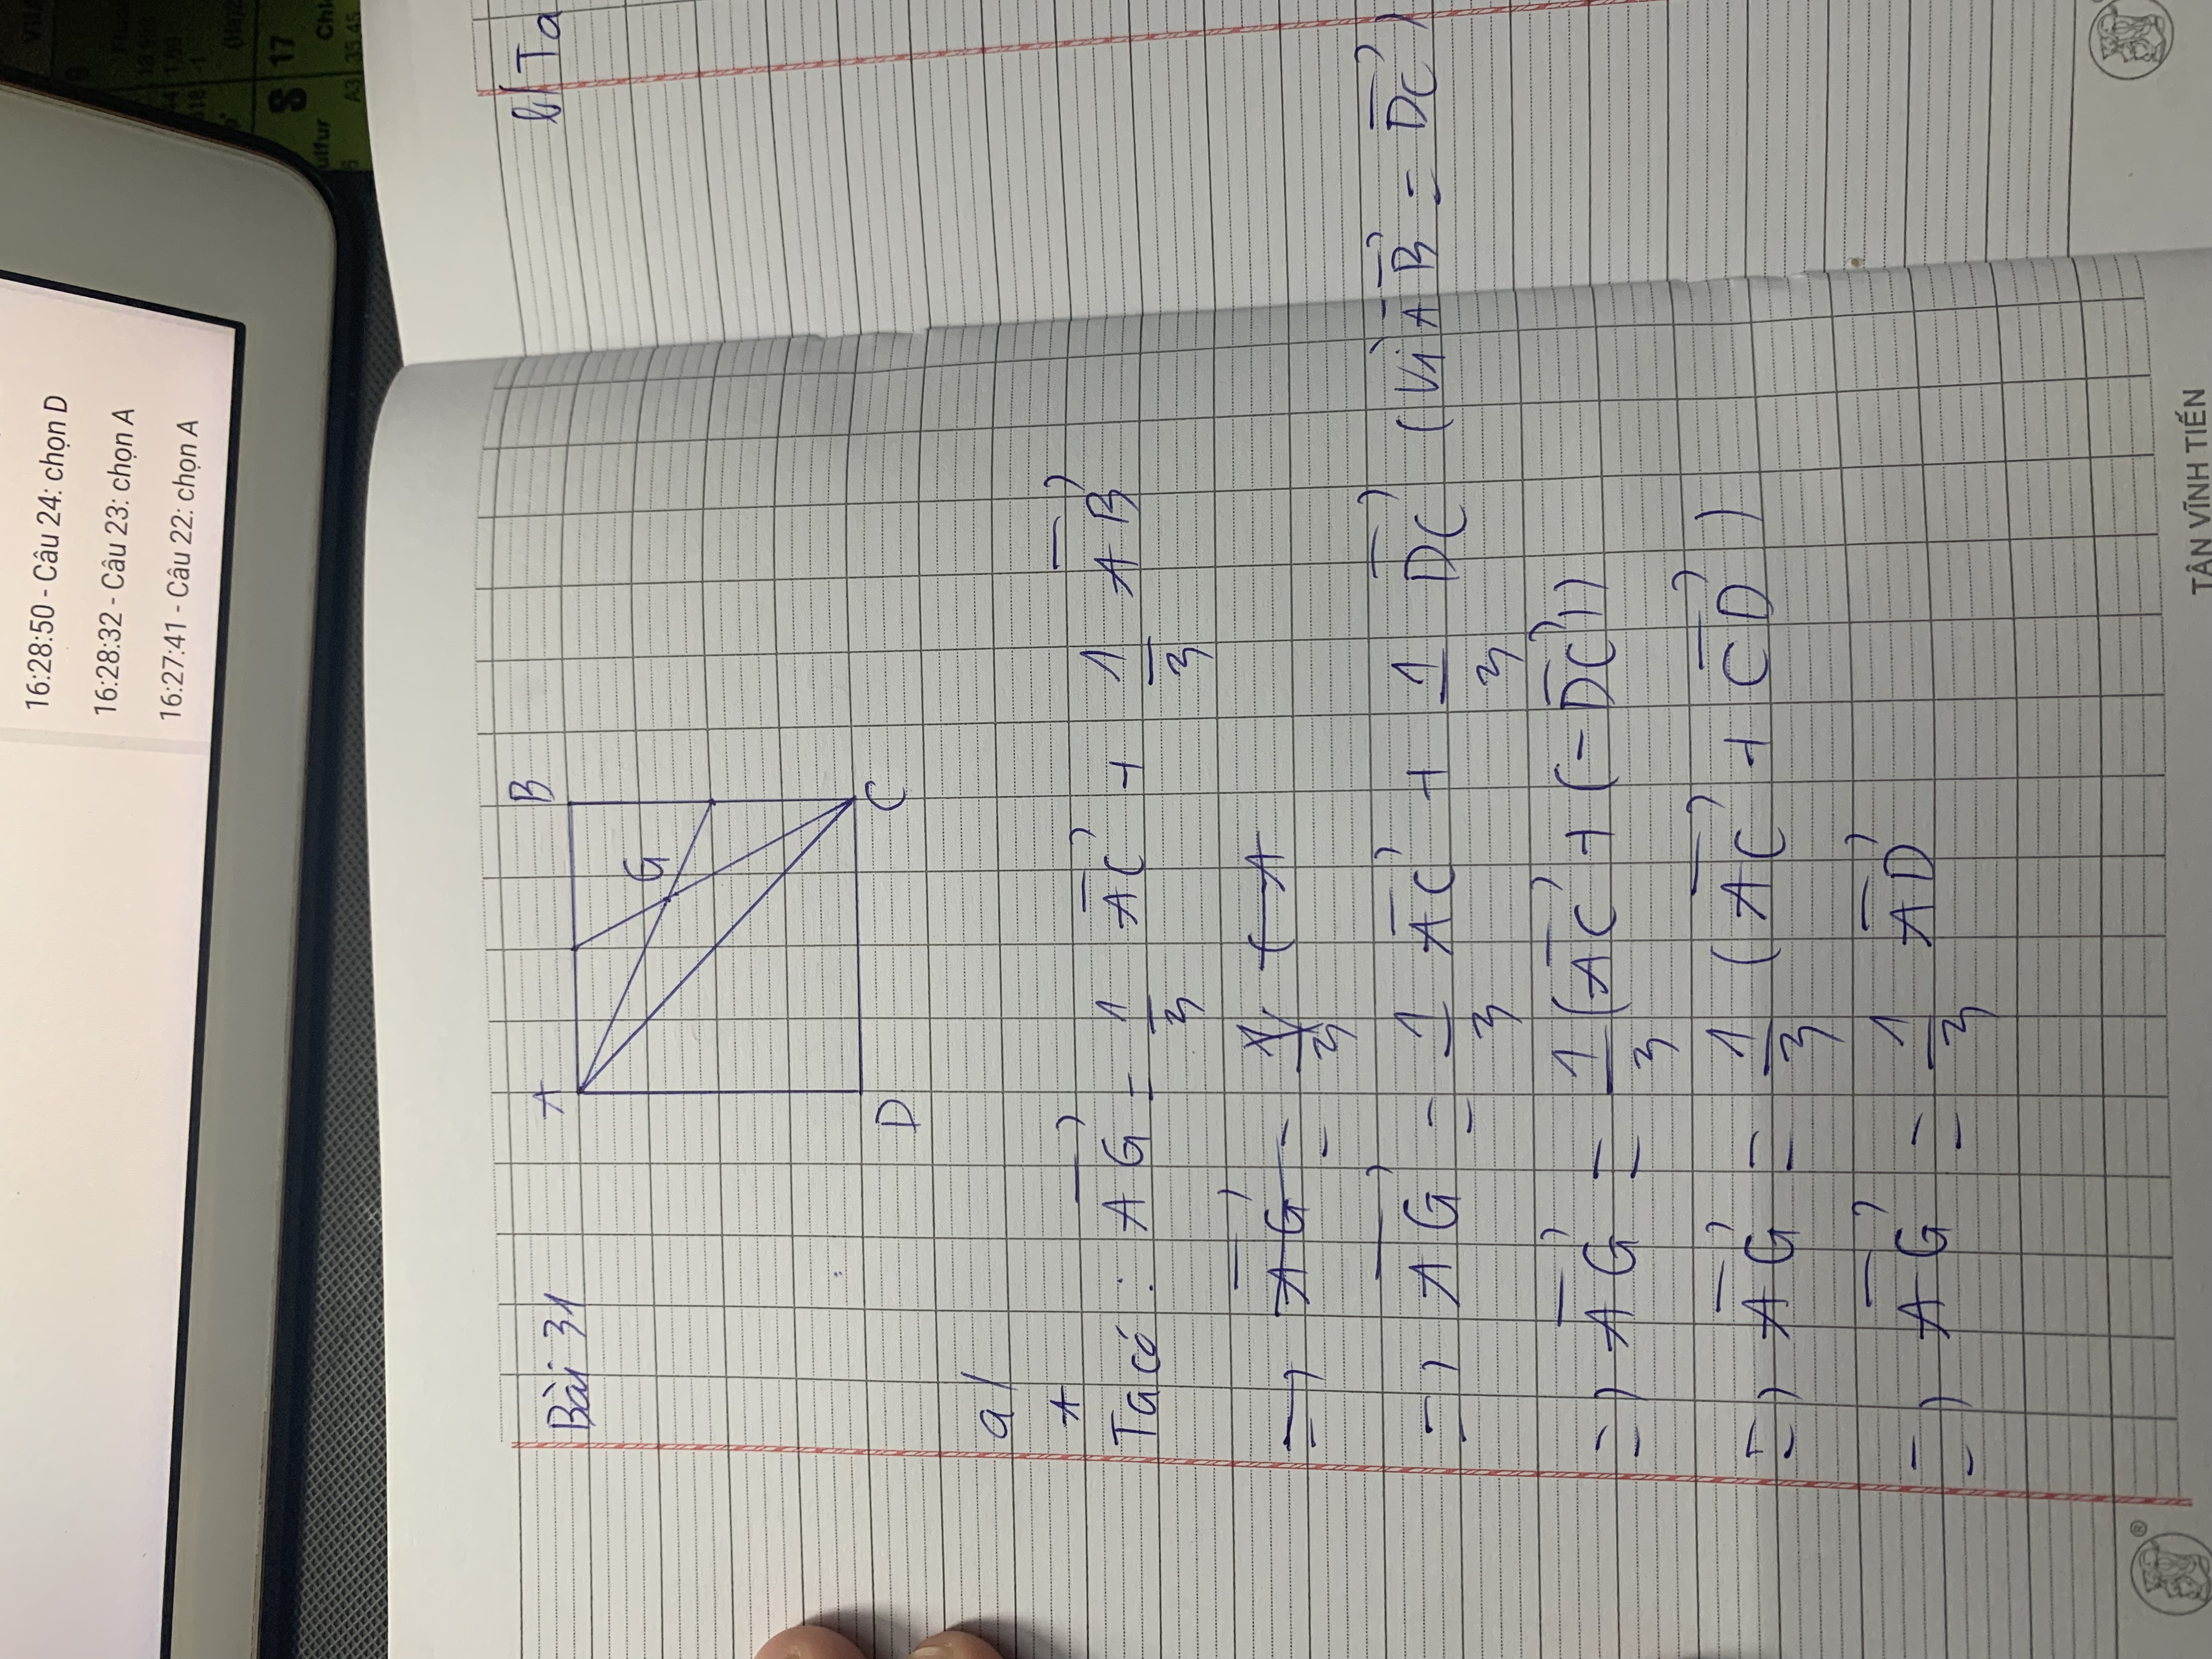 16:28:50 - Câu 24: chọn D
16:28:32 - Câu 23: chọn A
16:27:41 - Câu 22: chọn A
VII
9
18.998
1,69
-1
S 17
ulfur Chl
A3 35.45
Bài 31
A B
G
D C
a/
+
Ta có : AG⃗ = 1/3 AC⃗ + 1/3 AB⃗
=> AG⃗ = 1/3 ( A
=> AG⃗ = 1/3 AC⃗ + 1/3 DC⃗ (Vì AB⃗ = DC⃗)
=> AG⃗ = 1/3 (AC⃗ + (-DC⃗))
=> AG⃗ = 1/3 (AC⃗ + CD⃗)
=> AG⃗ = 1/3 AD⃗
b/ Ta
TÂN VĨNH TIẾN
®